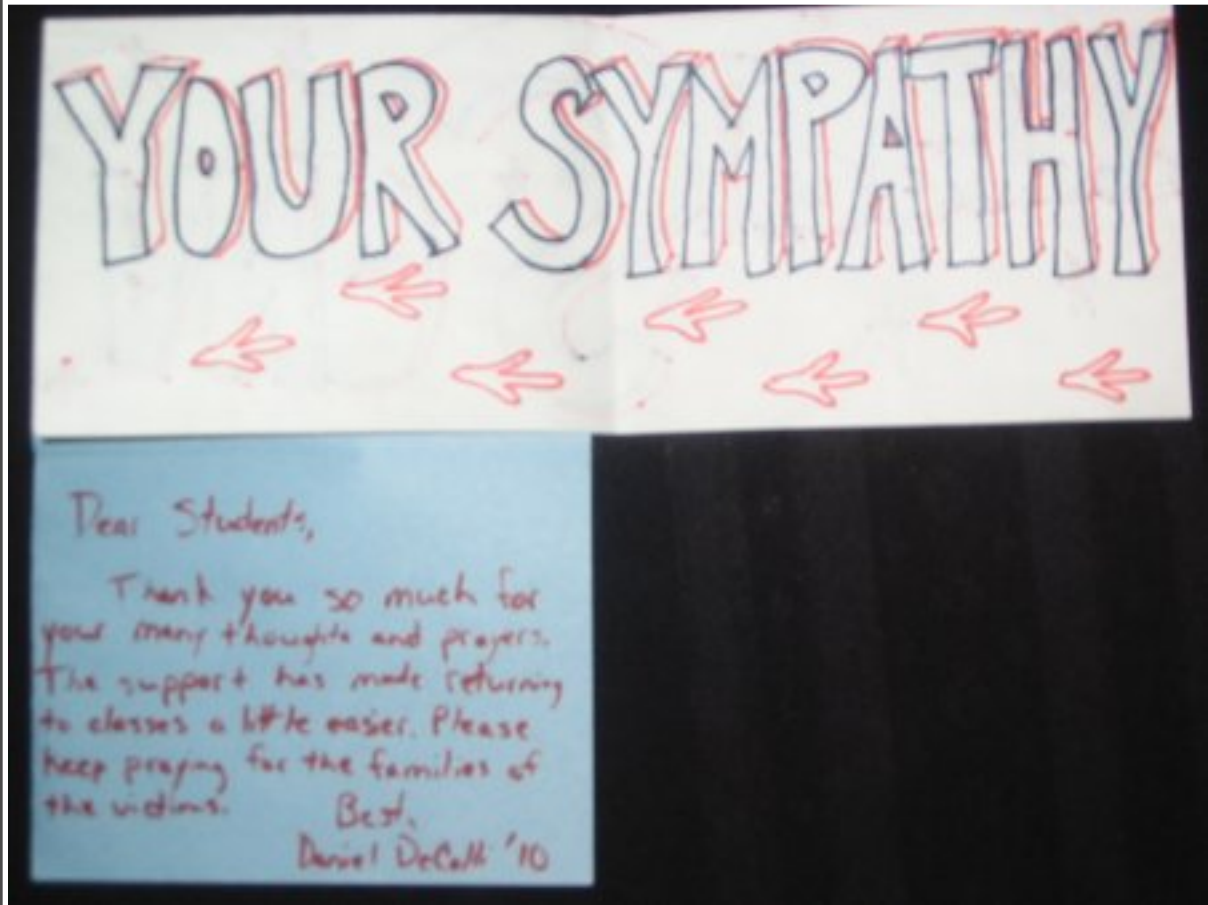 YOUR SYMPATHY
Dear Students,
Thank you so much for
your many thoughts and prayers.
The support has made returning
to classes a little easier. Please
keep praying for the families of
the victims.
Best,
Daniel '10